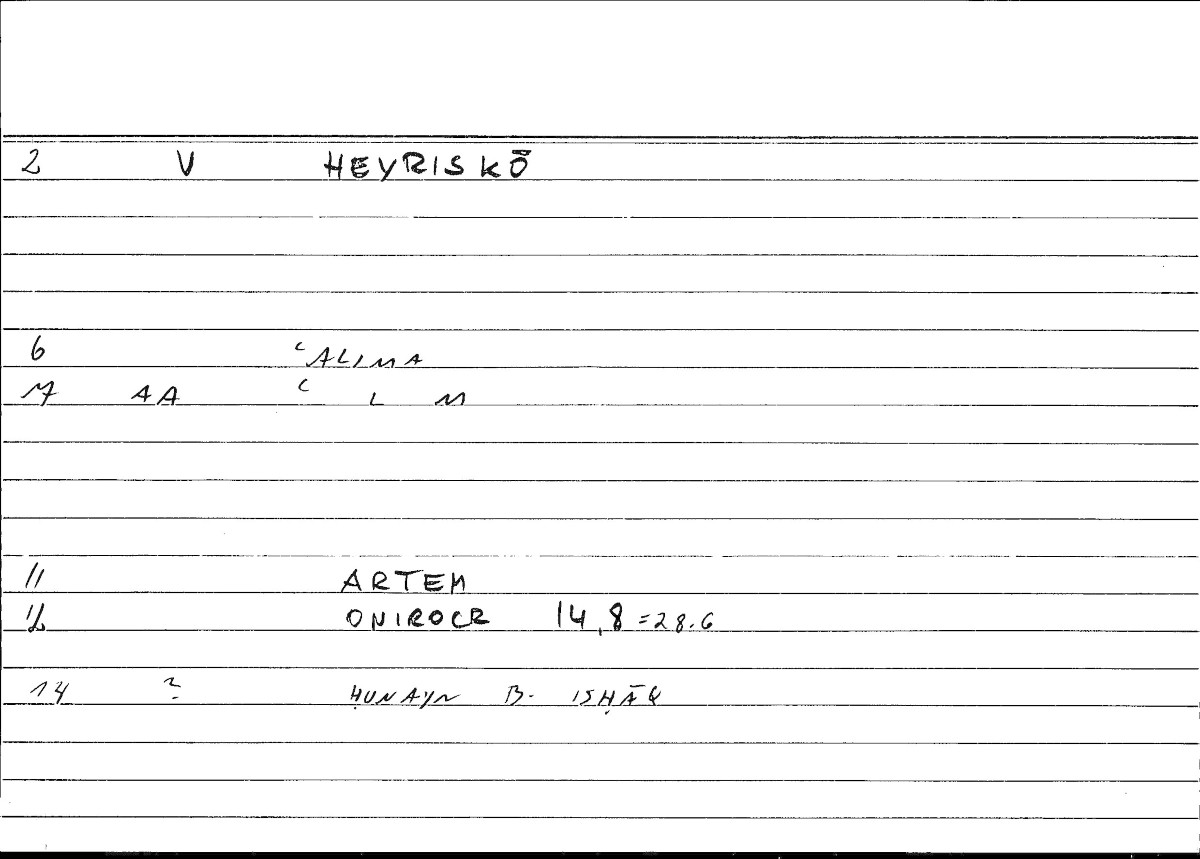 2 V HEYRISKŌ
6 ʿALIMA
7 AA ʿ L M
11 ARTEM
12 ONIROCR 14,8 =28.6
14 ? ḤUNAYN B. ISḤĀQ